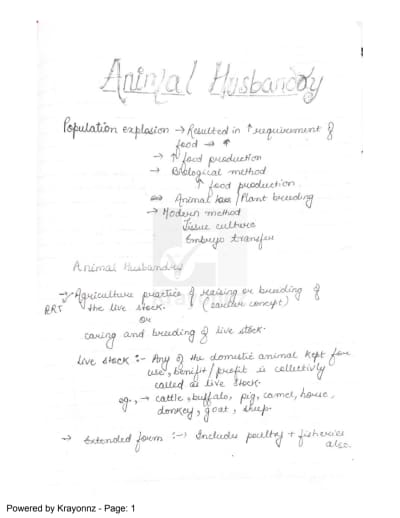 Animal Husbandry
Population explosion → Resulted in ↑ requirement of
food → ↑
→ ↑ food production
→ Biological method
↑ food production
⇔ Animal / Plant breeding
→ Modern method
Tissue culture
Embryo transfer
Animal Husbandry
→ Agriculture practice of raising or breeding of
the live stock. (earlier concept)
or
caring and breeding of live stock.
Live stock :- Any of the domestic animal kept for
use, benefit / profit is collectivly
called as live stock.
eg., → cattle, buffalo, pig, camel, horse,
donkey, goat, sheep.
→ Extended form :→ Includes poultry + fisheries
also.
Powered by Krayonnz - Page: 1